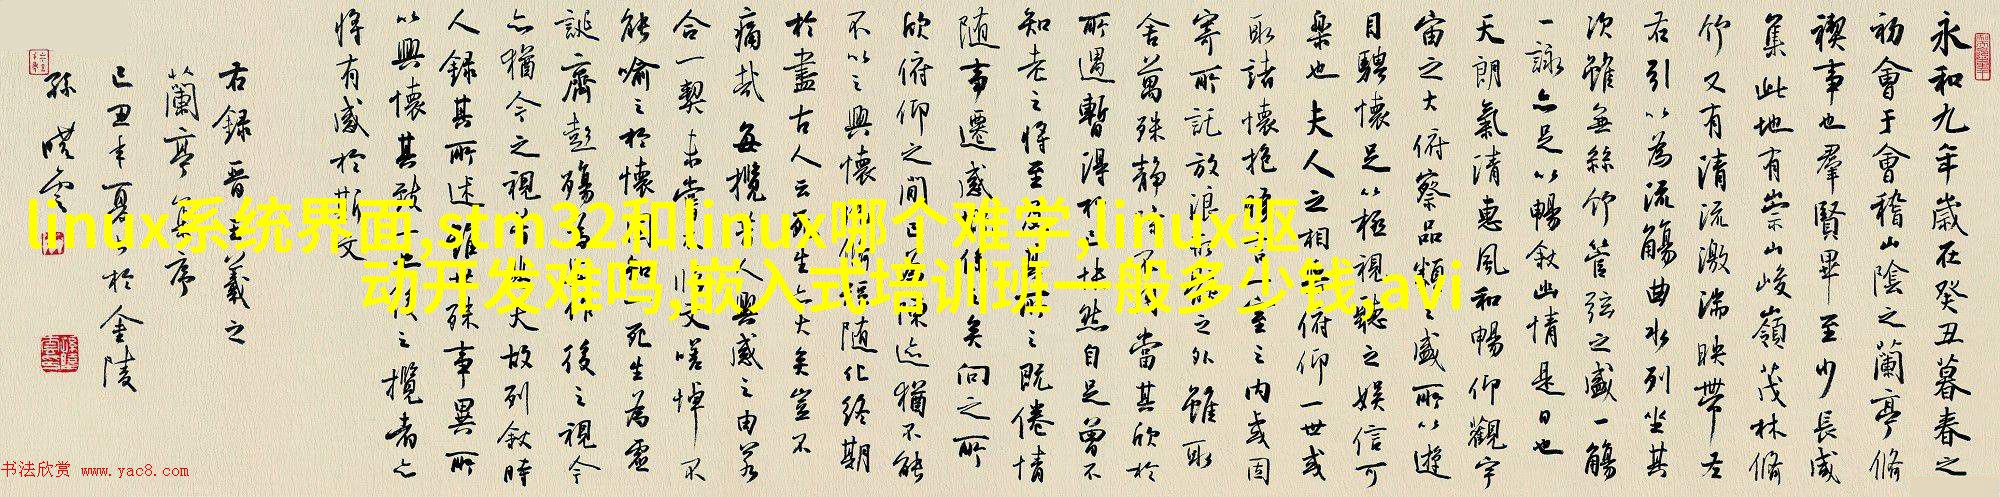 linux系统界面,stm32和linux哪个难学,linux驱
动开发难吗,嵌入式培训班一般多少钱,avi
永和九年歲在癸丑暮春之
初會于會稽山陰之蘭亭脩
禊事也羣賢畢至少長咸
集此地有崇山峻嶺茂林脩
竹又有清流激湍映帶左
右引以為流觴曲水列坐其
次雖無絲竹管弦之盛一觴
一詠亦足以暢敘幽情是日也
天朗氣清惠風和暢仰觀宇
宙之大俯察品類之盛所以遊
目騁懷足以極視聽之娛信可
樂也夫人之相與俯仰一世或
取諸懷抱一室之內或因
寄所託放浪之外雖取
舍萬殊靜不當其欣於
所遇暫得於然自足曾不
知老之將至及其所之既倦情
随事遷感矣向之所
欣俯仰之間已為陳迹猶不能
不以之興懷脩短随化終期
於盡古人云死生亦大矣豈不
痛哉每攬人興感之由若
合一契未嘗不臨文嗟悼不
能喻之於懷固知一死生為虛
誕齊彭殤為作後之視今
亦猶今之視昔夫故列敘時
人錄其所述雖世殊事異所
以興懷其致一也後之攬者亦
將有感於斯文
右錄晉王羲之
蘭亭集序
己丑年夏月於金陵
孫曉雲
书法欣赏 www.yac8.com